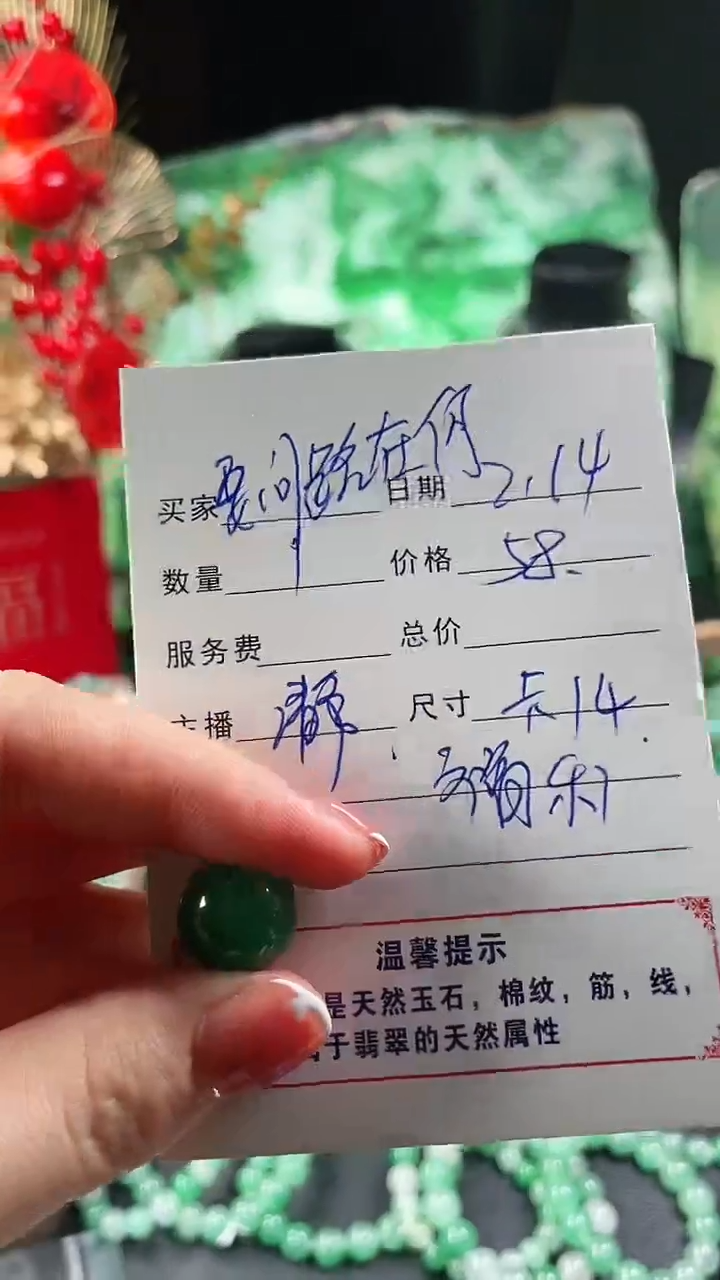 买家 要问路在何 日期 2.14
数量 价格 58.
服务费 总价
主播 静 尺寸 卡14.
温馨提示
是天然玉石，棉纹，筋，线，
于翡翠的天然属性
福